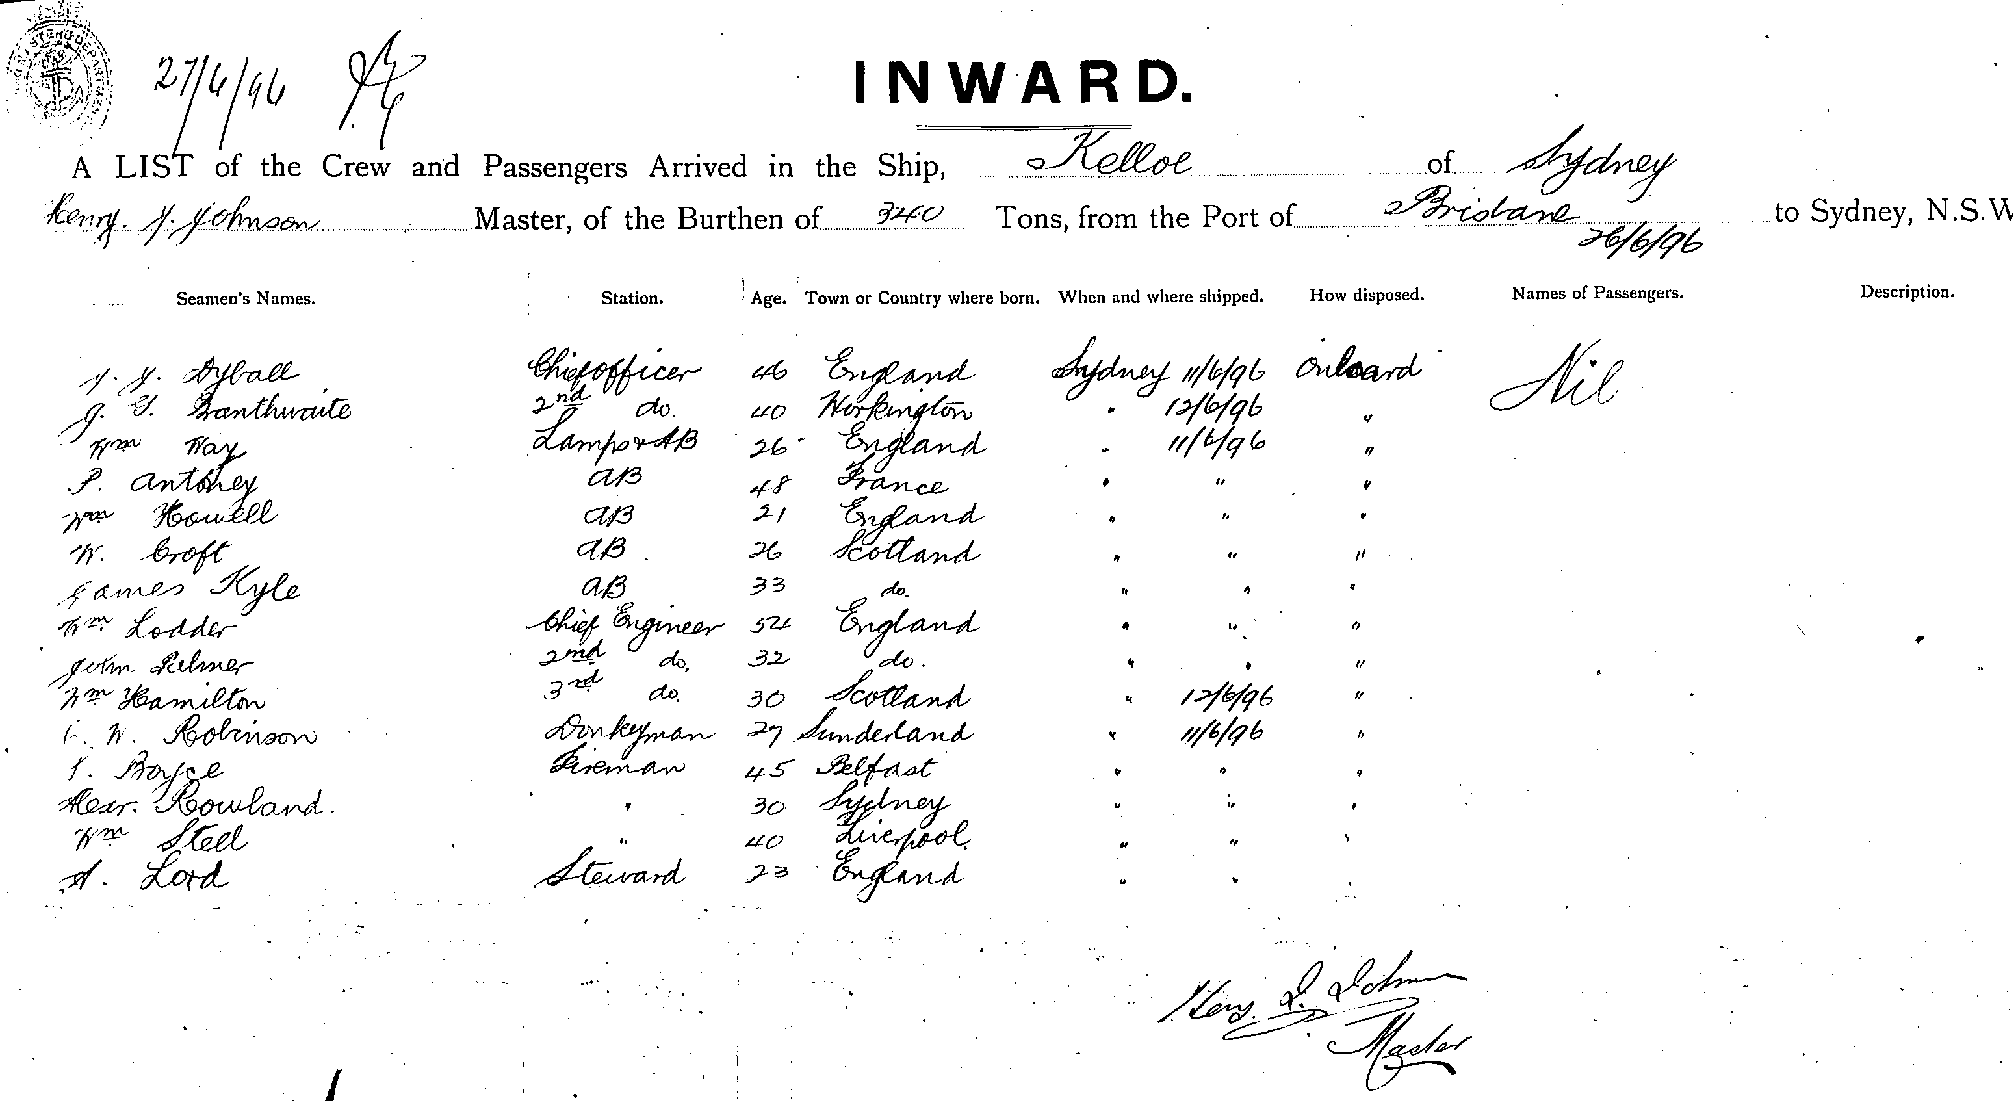 27/6/96
INWARD.
A LIST of the Crew and Passengers Arrived in the Ship, Kelloe of Sydney
Henry. J. Johnson Master, of the Burthen of Tons, from the Port of Brisbane to Sydney, N.S.W
26/6/96
Seamen's Names. Station. Age. Town or Country where born. When and where shipped. How disposed. Names of Passengers. Description.
J. J. Dyball Chief officer 46 England Sydney 11/6/96 Onboard Nil
J. 2nd do. 40 Workington " 12/6/96 "
Wm Way Lamps & AB 26 England " 11/6/96 "
P. Antoney AB 48 France " " "
Wm Howell AB 21 England " " "
W. Croft AB 26 Scotland " " "
James Kyle AB 33 do. " " "
Wm Lodder Chief Engineer 54 England " " "
John Palmer 2nd do. 32 do. " " "
Wm Hamilton 3rd do. 30 Scotland " 12/6/96 "
W. Robinson Donkeyman 27 Sunderland " 11/6/96 "
Boyce Fireman 45 Belfast " " "
Alexr. Rowland. " 30 Sydney " " "
Wm Stell " 40 Liverpool. " " "
A. Lord Steward 23 England " "
Heny. J. Johnson
Master